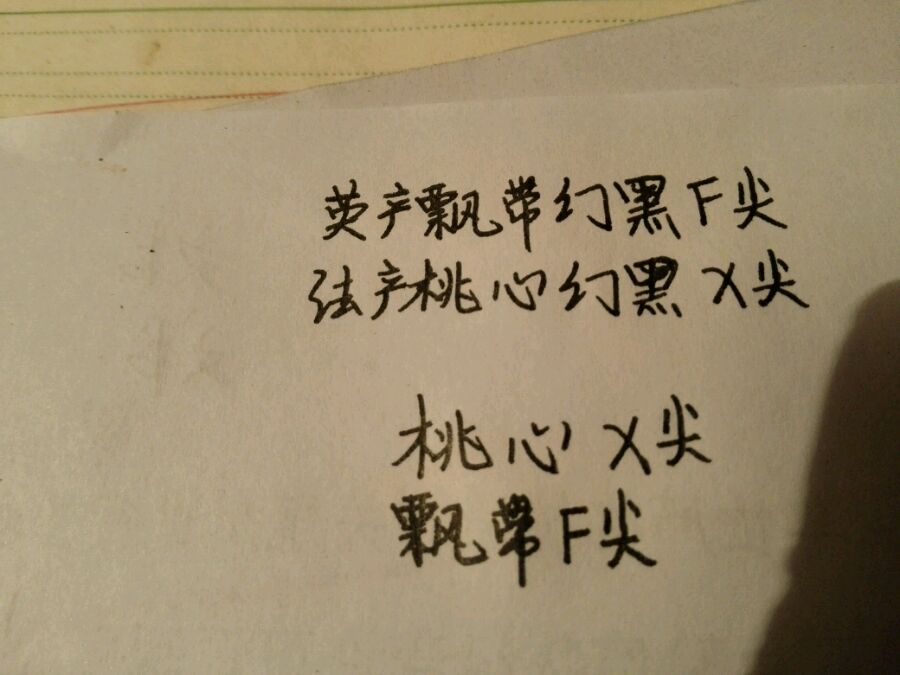 英产飘带幻黑F尖
法产桃心幻黑X尖
桃心X尖
飘带F尖